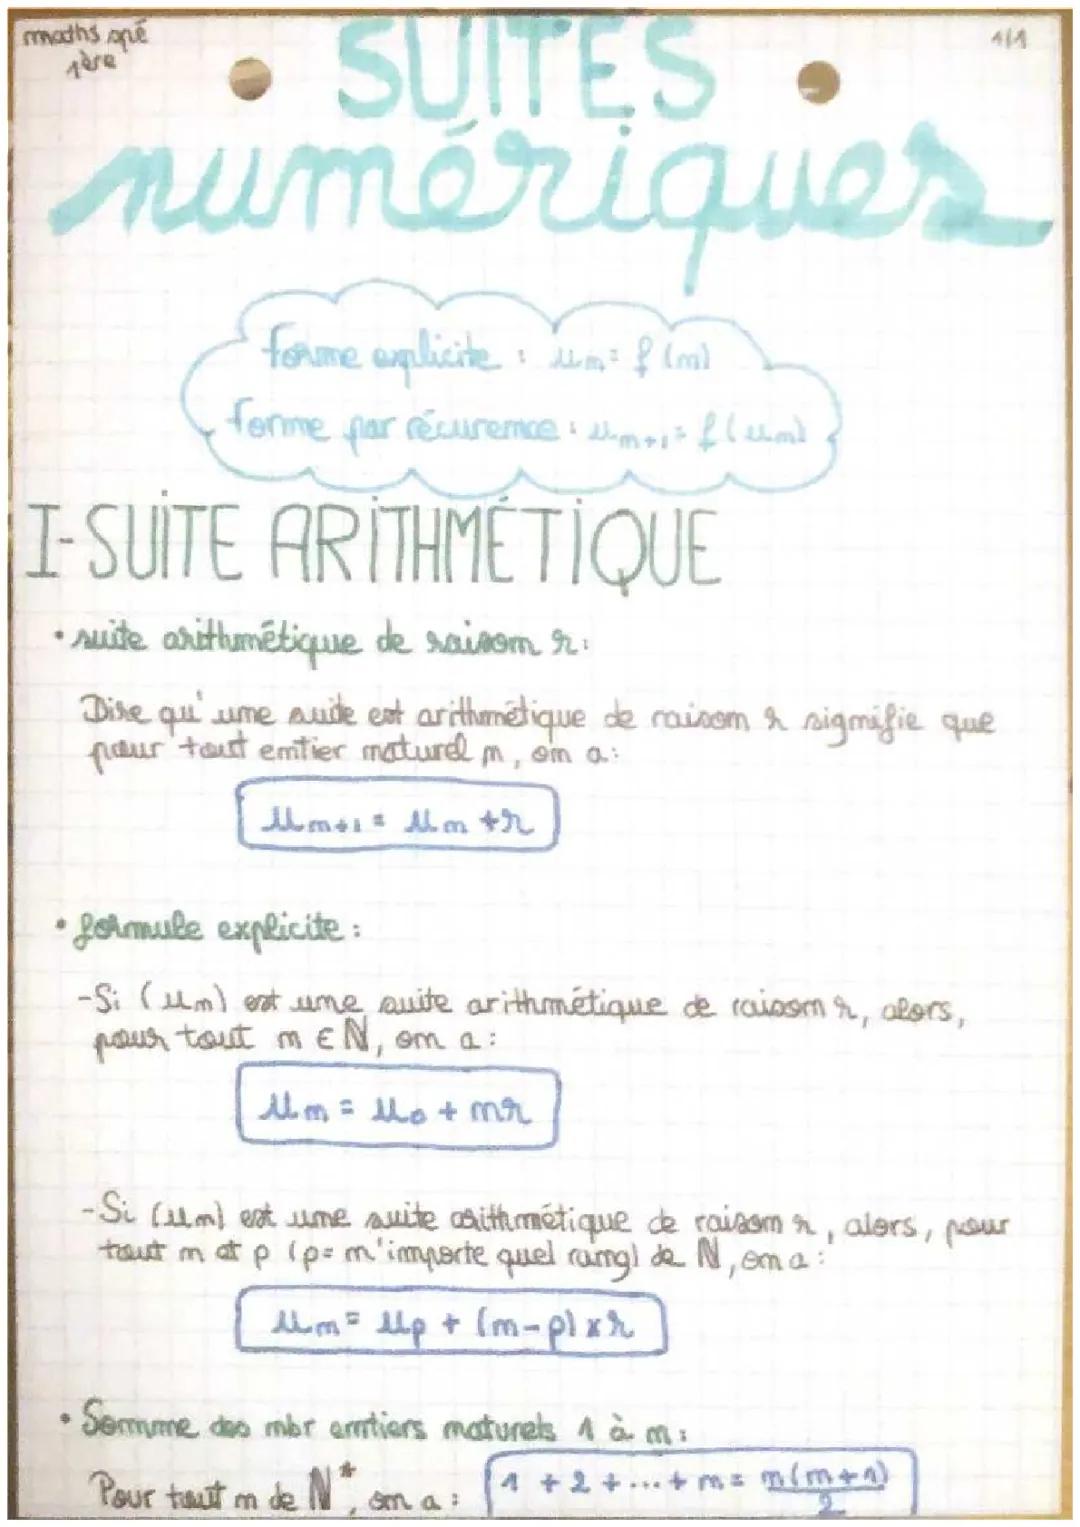 maths spé
1ère
1/1
SUITES
numériques
forme explicite : un = f(n)
forme par récurence : un+1 = f(un)
I-SUITE ARITHMÉTIQUE
• suite arithmétique de raison r :
Dire qu'une suite est arithmétique de raison r signifie que
pour tout entier naturel n, on a :
un+1 = un + r
• formule explicite :
-Si (un) est une suite arithmétique de raison r, alors,
pour tout n ∈ ℕ, on a :
un = u0 + nr
-Si (un) est une suite arithmétique de raison r, alors, pour
tout n et p (p = n'importe quel rang) de ℕ, on a :
un = up + (n-p) x r
• Somme des nbr entiers naturels 1 à n :
Pour tout n de ℕ*, on a : 1 + 2 + ... + n = n(n+1)/2